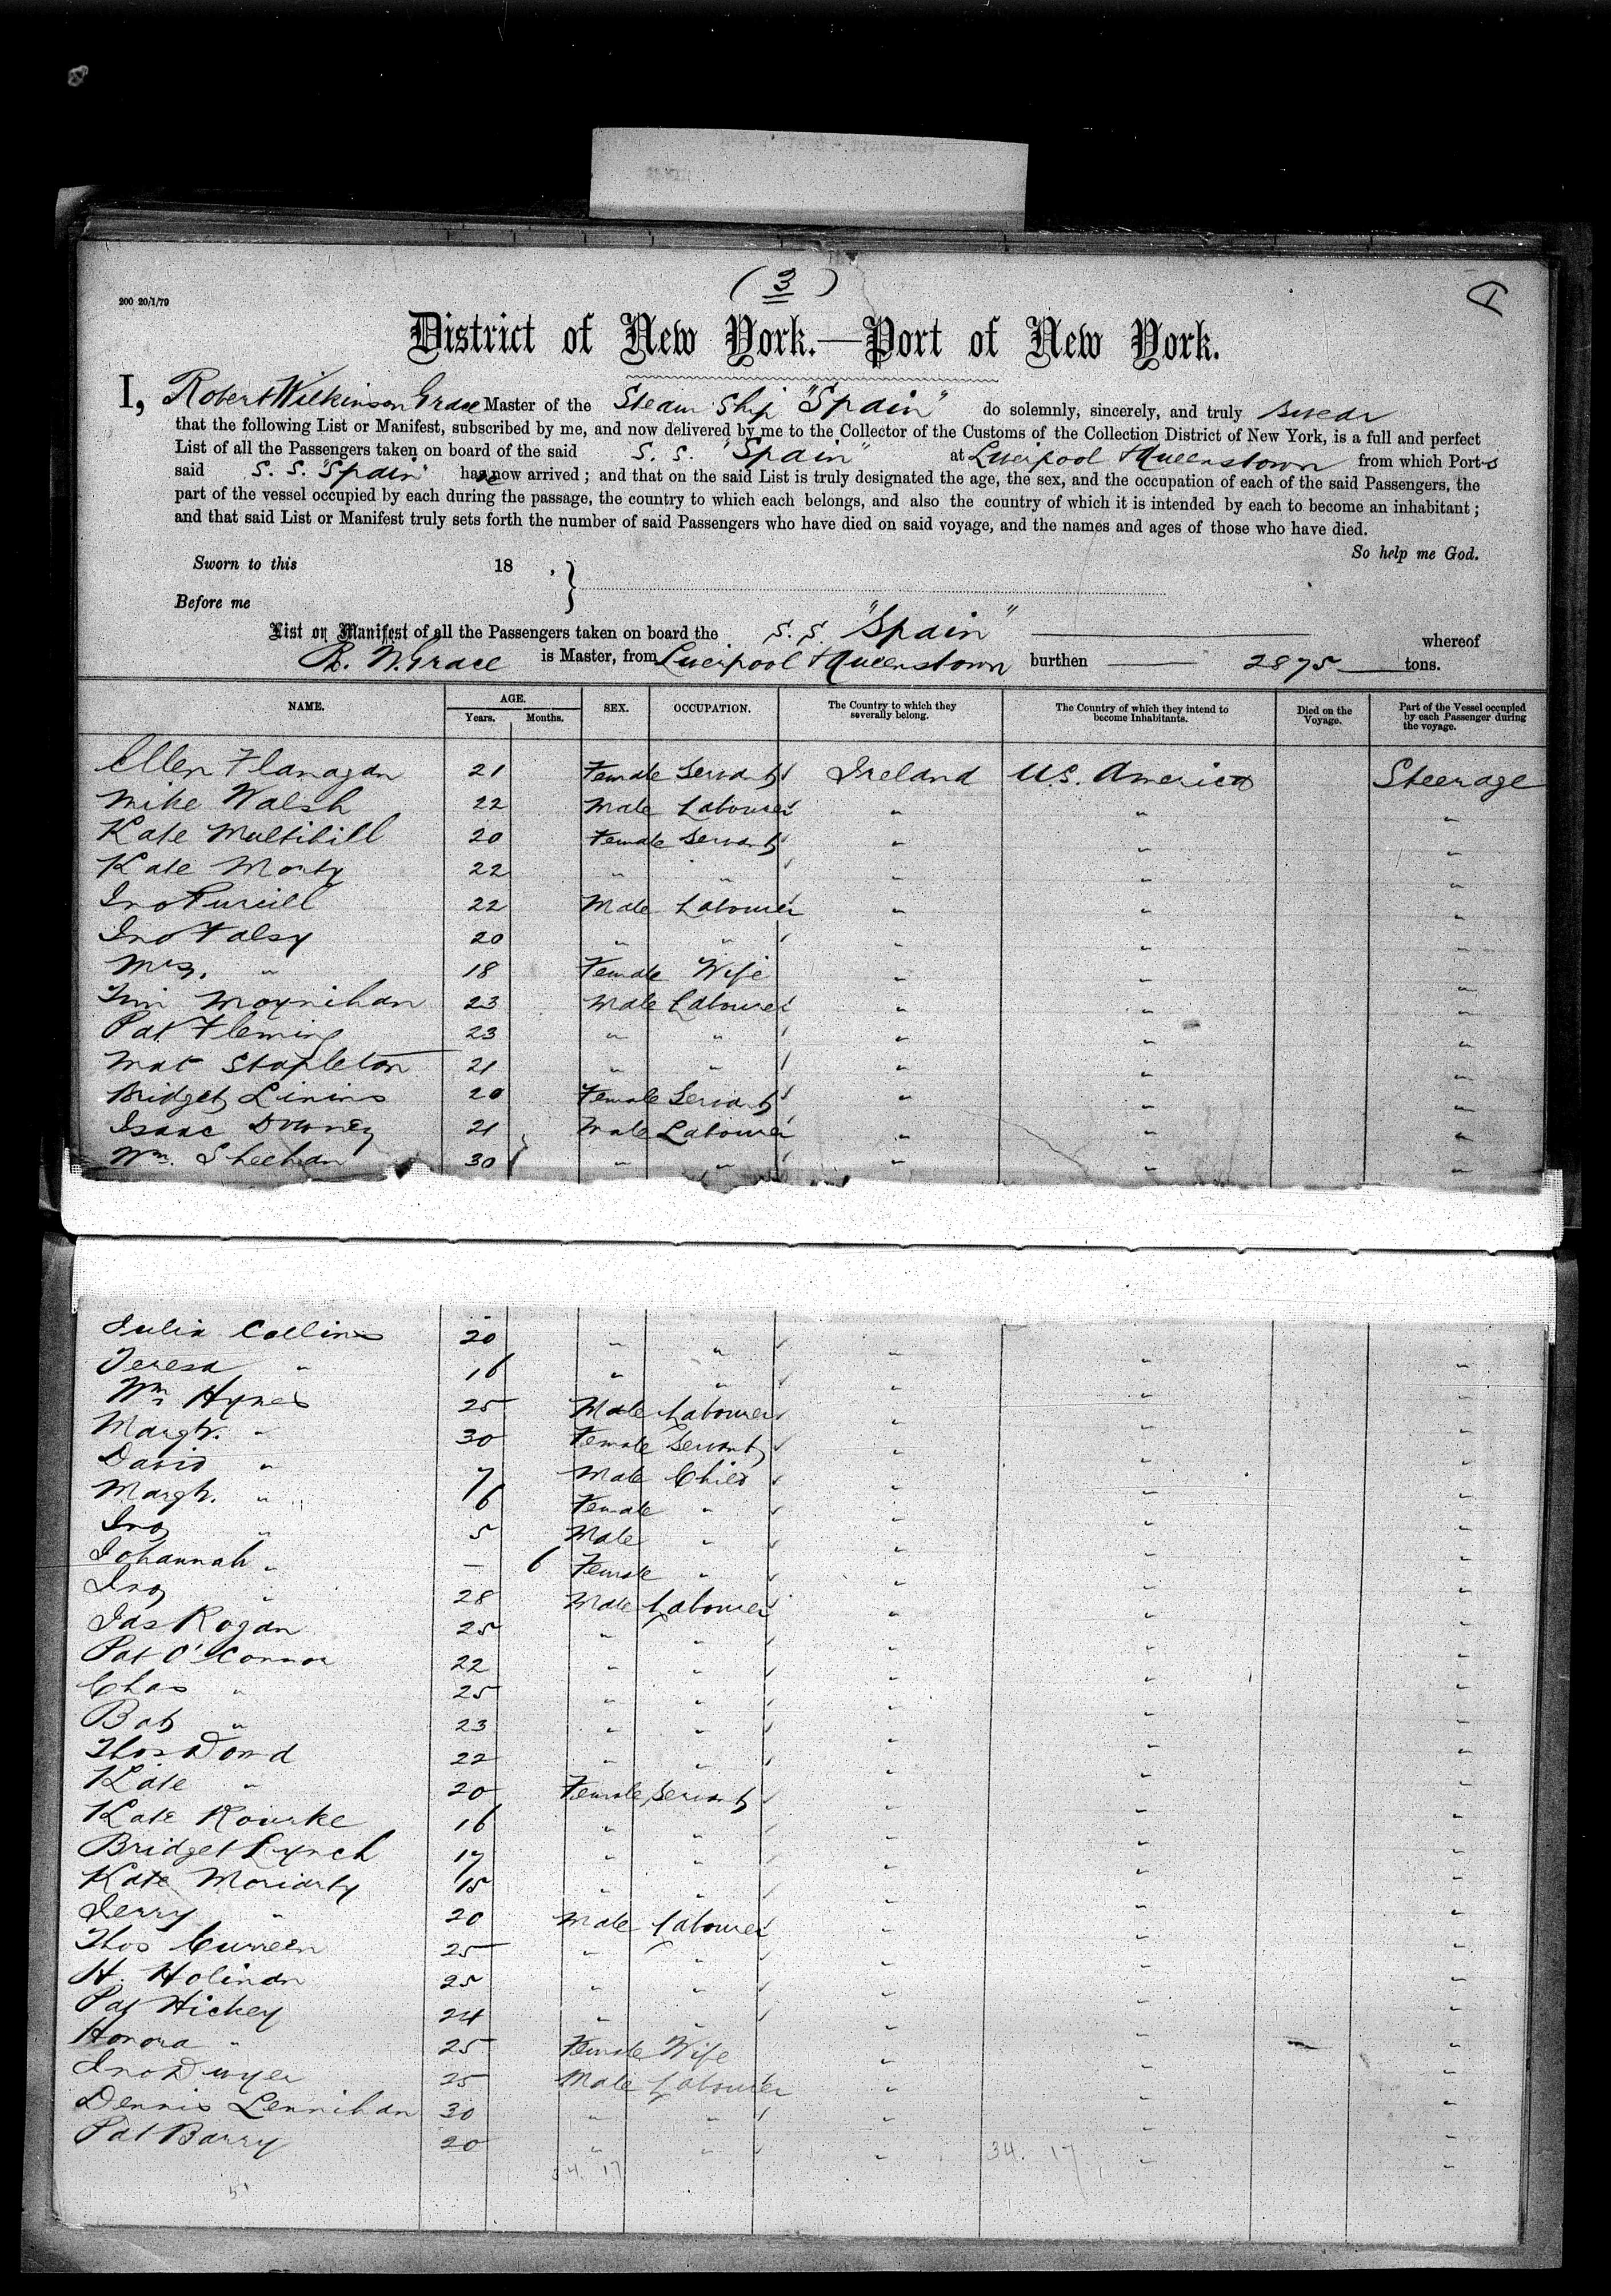 ( 3 )
200 20/1/79
District of New York.—Port of New York.
I, Robert Wilkinson Grace Master of the Steam Ship "Spain" do solemnly, sincerely, and truly swear
that the following List or Manifest, subscribed by me, and now delivered by me to the Collector of the Customs of the Collection District of New York, is a full and perfect
List of all the Passengers taken on board of the said S. S. "Spain" at Liverpool & Queenstown from which Port-s
said S. S. "Spain" has now arrived; and that on the said List is truly designated the age, the sex, and the occupation of each of the said Passengers, the
part of the vessel occupied by each during the passage, the country to which each belongs, and also the country of which it is intended by each to become an inhabitant;
and that said List or Manifest truly sets forth the number of said Passengers who have died on said voyage, and the names and ages of those who have died.
So help me God.
Sworn to this 18 ,
Before me
List or Manifest of all the Passengers taken on board the S. S. "Spain" whereof
R. W. Grace is Master, from Liverpool & Queenstown burthen 2875 tons.
NAME. AGE. Years. Months. SEX. OCCUPATION. The Country to which they severally belong. The Country of which they intend to become Inhabitants. Died on the Voyage. Part of the Vessel occupied by each Passenger during the voyage.
Ellen Flanagan 21 Female Servant Ireland U.S. America Steerage
Mike Walsh 22 Male Labourer " " "
Kate Multihill 20 Female Servant " " "
Kate Morty 22 " " " " "
Jno Purcill 22 Male Labourer " " "
Jno Falsy 20 " " " " "
Mrs. " 18 Female Wife " " "
Tim Moynihan 23 Male Labourer " " "
Pat Fleming 23 " " " " "
Mat Stapleton 21 " " " " "
Bridget 20 Female Servant " " "
Isaac Downey 21 Male Labourer " " "
Wm. Sheehan 30 " " " " "
Julia Collins 20 " " " " "
Teresa " 16 " " " " "
Wm Hynes 25 Male Labourer " " "
Margt. " 30 Female Servant " " "
David " 7 Male Child " " "
Margt. " 6 Female " " " "
Jno " 5 Male " " " "
Johannah " — 6 Female " " " "
Jno " 28 Male Labourer " " "
Jas Rogan 25 " " " " "
Pat O'Connor 22 " " " " "
Chas " 25 " " " " "
Bob " 23 " " " " "
Thos Dowd 22 " " " " "
Kate " 20 Female Servant " " "
Kate Rourke 16 " " " " "
Bridget Lynch 17 " " " " "
Kate Moriarty 15 " " " " "
Jerry " 20 Male Labourer " " "
Thos Curreen 25 " " " " "
H. Holinan 25 " " " " "
Pat Hickey 24 " " " " "
Honora " 25 Female Wife " " "
Jno Dwyer 25 Male Labourer " " "
Dennis Lennihan 30 " " " " "
Pat Barry 20 " " " " "
34. 17 34. 17